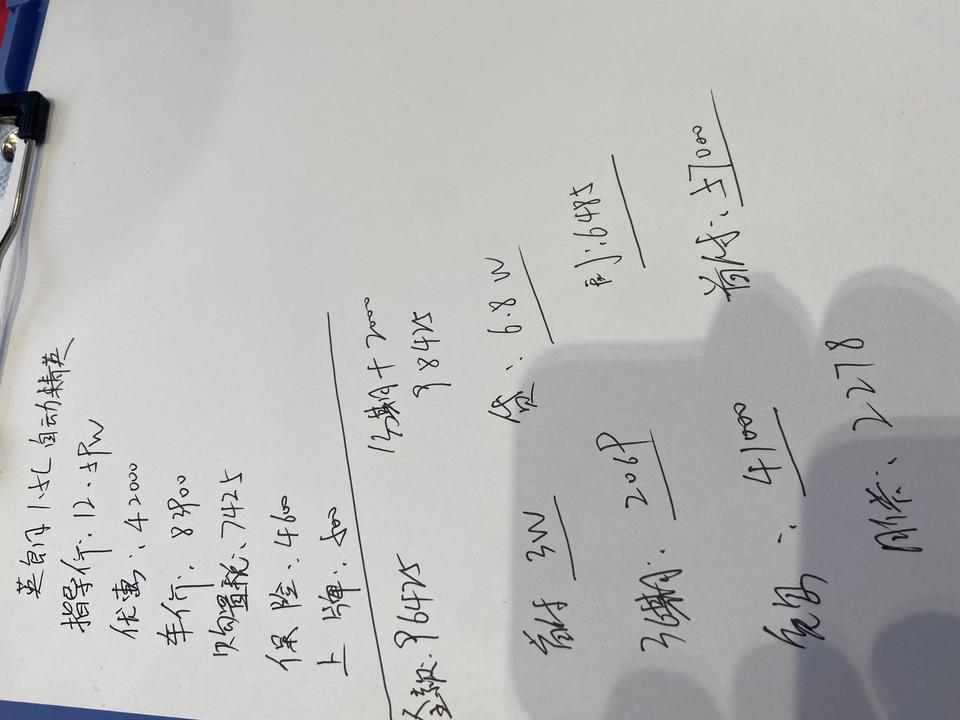 英朗 1.5L 自动精英
指导价: 12.59W
优惠: 42000
车价: 83900
购置税: 7425
保险: 4600
上牌: 500
全款: 96425 分期+2000
98425
首付 3W 贷: 6.8W
36期: 2069 利: 6485
免息: 41000 首付: 57000
月供: 2278